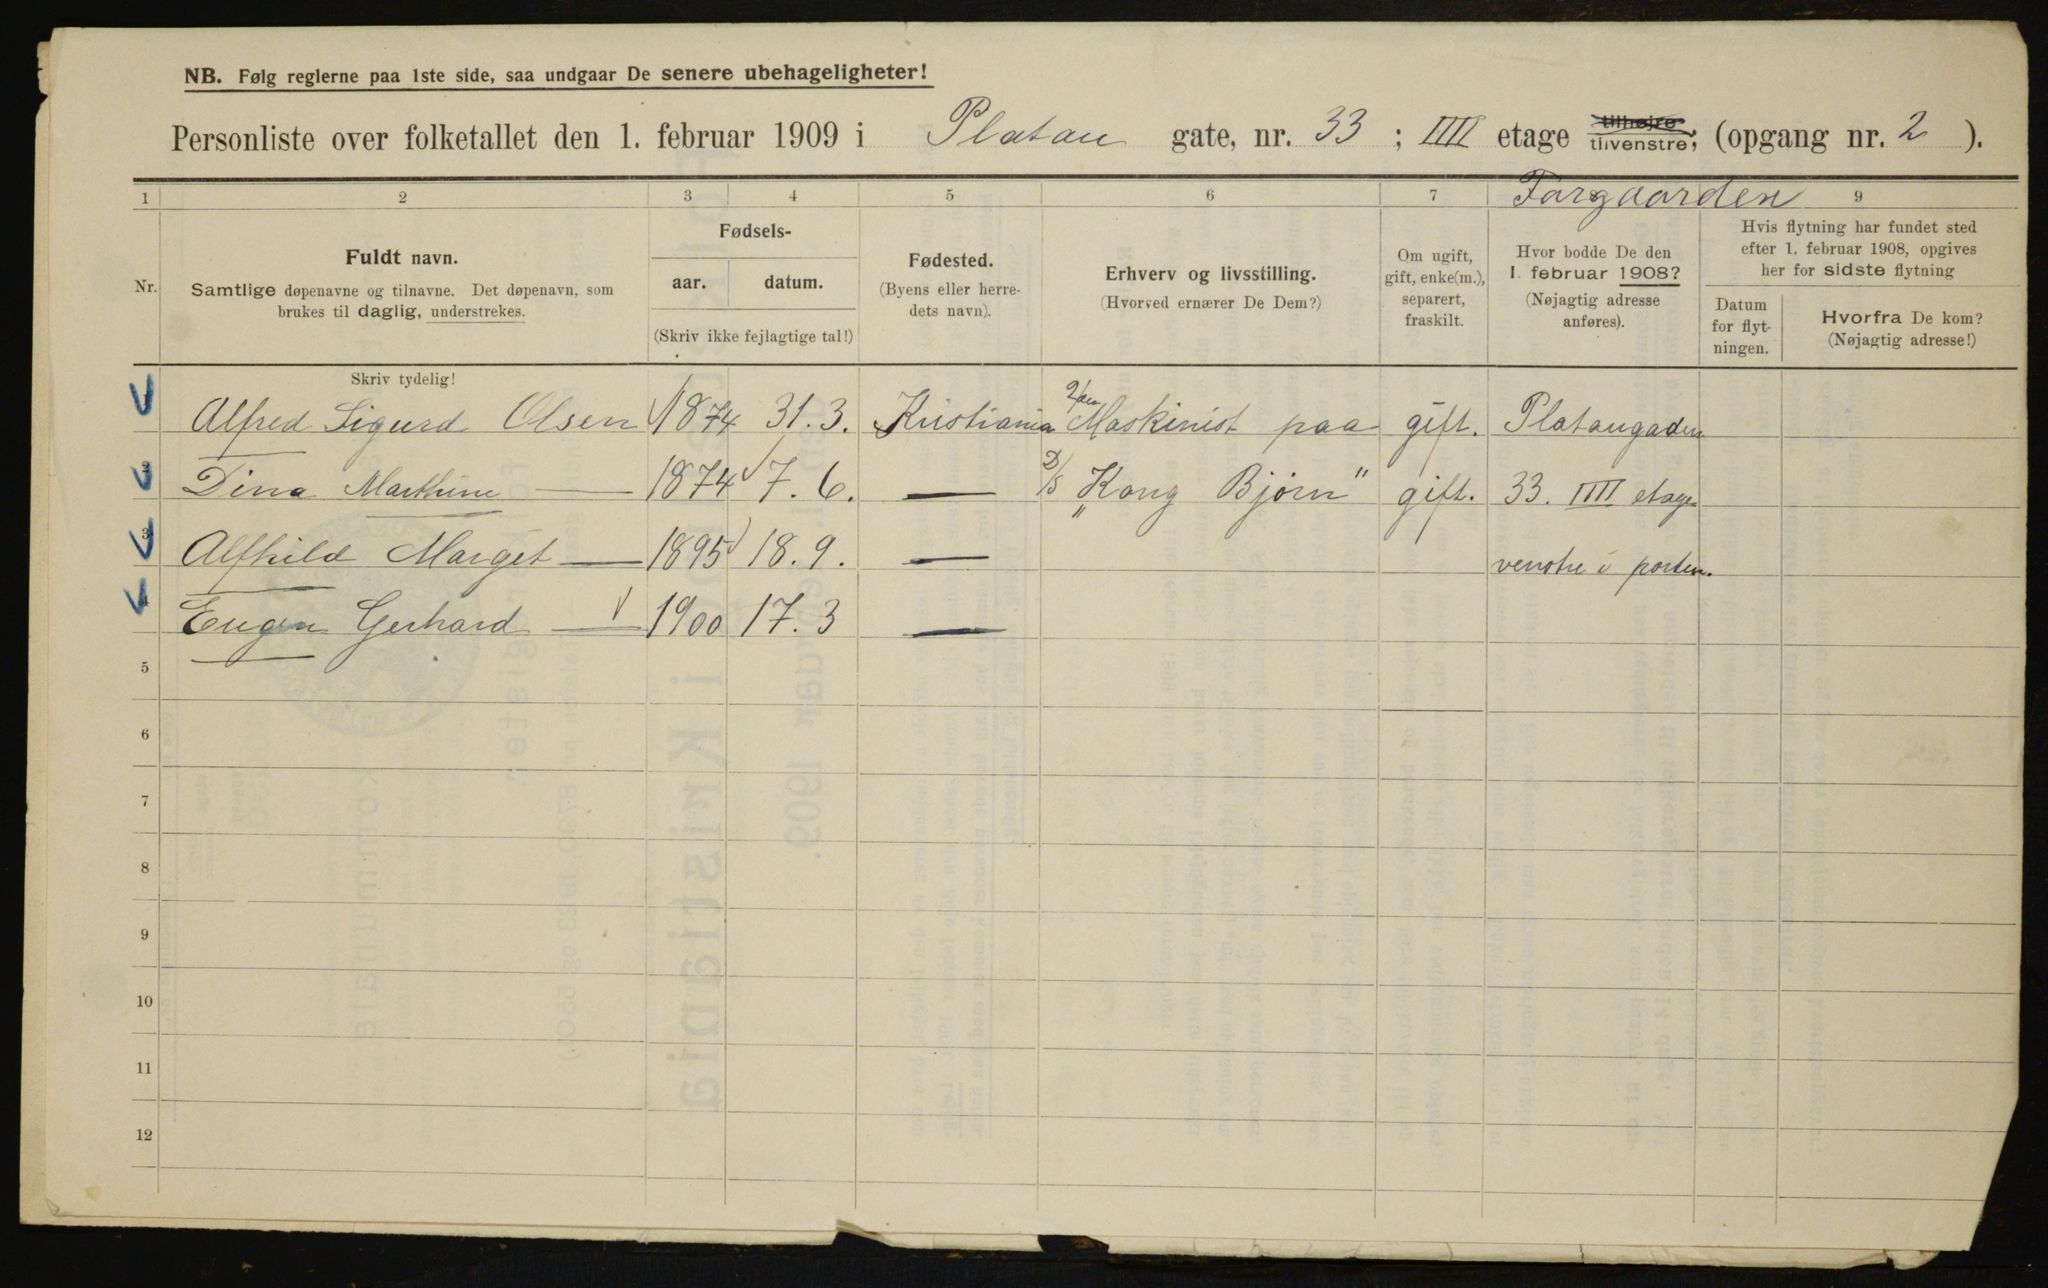 NB. Følg reglerne paa 1ste side, saa undgaar De senere ubehageligheter!
Personliste over folketallet den 1. februar 1909 i Platou gate, nr. 33 ; IIII etage tilhøjre tilvenstre; (opgang nr. 2 ).
Forgaarden
1 2 3 4 5 6 7 9
Nr.
Fuldt navn.
Samtlige døpenavne og tilnavne. Det døpenavn, som
brukes til daglig, understrekes.
Skriv tydelig!
Fødsels-
aar. datum.
(Skriv ikke fejlagtige tal!)
Fødested.
(Byens eller herre-
dets navn).
Erhverv og livsstilling.
(Hvorved ernærer De Dem?)
Om ugift,
gift, enke(m.),
separert,
fraskilt.
Hvor bodde De den
1. februar 1908?
(Nøjagtig adresse
anføres).
Hvis flytning har fundet sted
efter 1. februar 1908, opgives
her for sidste flytning
Datum
for flyt-
ningen.
Hvorfra De kom?
(Nøjagtig adresse!)
1 Alfred Sigurd Olsen 1874 31.3. Kristiania 2den Maskinist paa gift. Platougaden
2 Dina Marthine — 1874 7.6. — D/S „Kong Bjørn" gift. 33. IIII etage
3 Alfhild Marget — 1895 18.9. — venstre i porten.
4 Eugen Gerhard — 1900 17.3 —
5
6
7
8
9
10
11
12